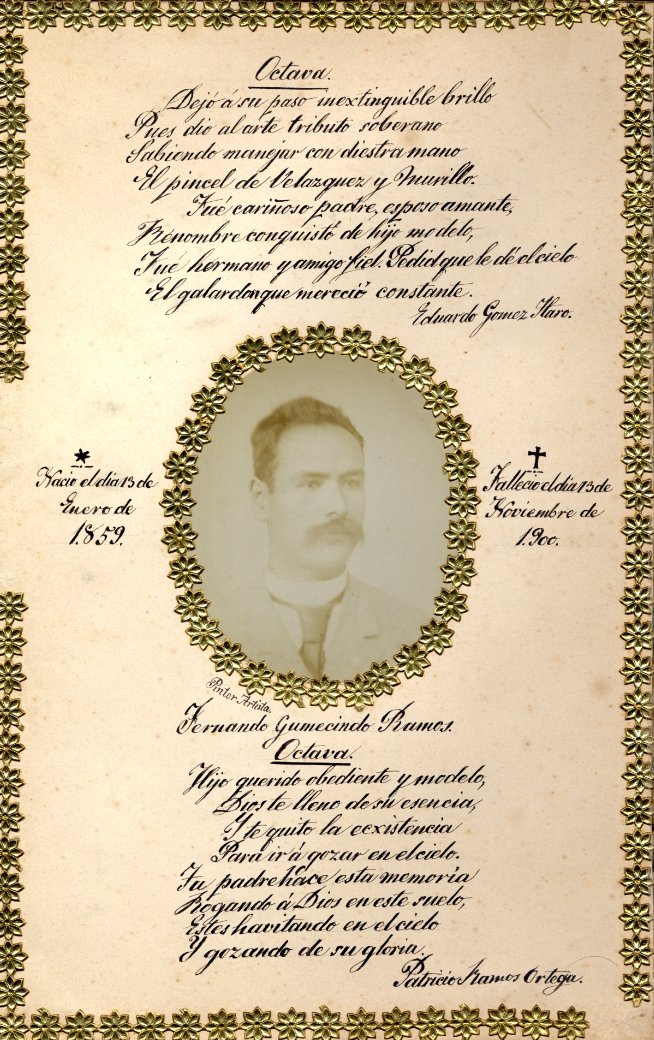 Octava.
Dejó á su paso inextinguible brillo
Pues dio al arte tributo soberano
Sabiendo manejar con diestra mano
El pincel de Velazquez y Murillo.
Fué cariñoso padre, esposo amante,
Renombre conquistó de hijo modelo,
Fué hermano y amigo fiel. Pedid que le dé el cielo
El galardon que mereció constante.
Eduardo Gomez Haro.
Nacio el dia 13 de
Enero de
1859.
Fallecio el dia 13 de
Noviembre de
1900.
Pintor Artista.
Fernando Gumecindo Ramos.
Octava.
Hijo querido obediente y modelo,
Dios te lleno de su esencia,
Y te quito la ecxistencia
Para ir á gozar en el cielo.
Tu padre hace esta memoria
Rogando á Dios en este suelo,
Estes havitando en el cielo
Y gozando de su gloria.
Patricio Ramos Ortega.